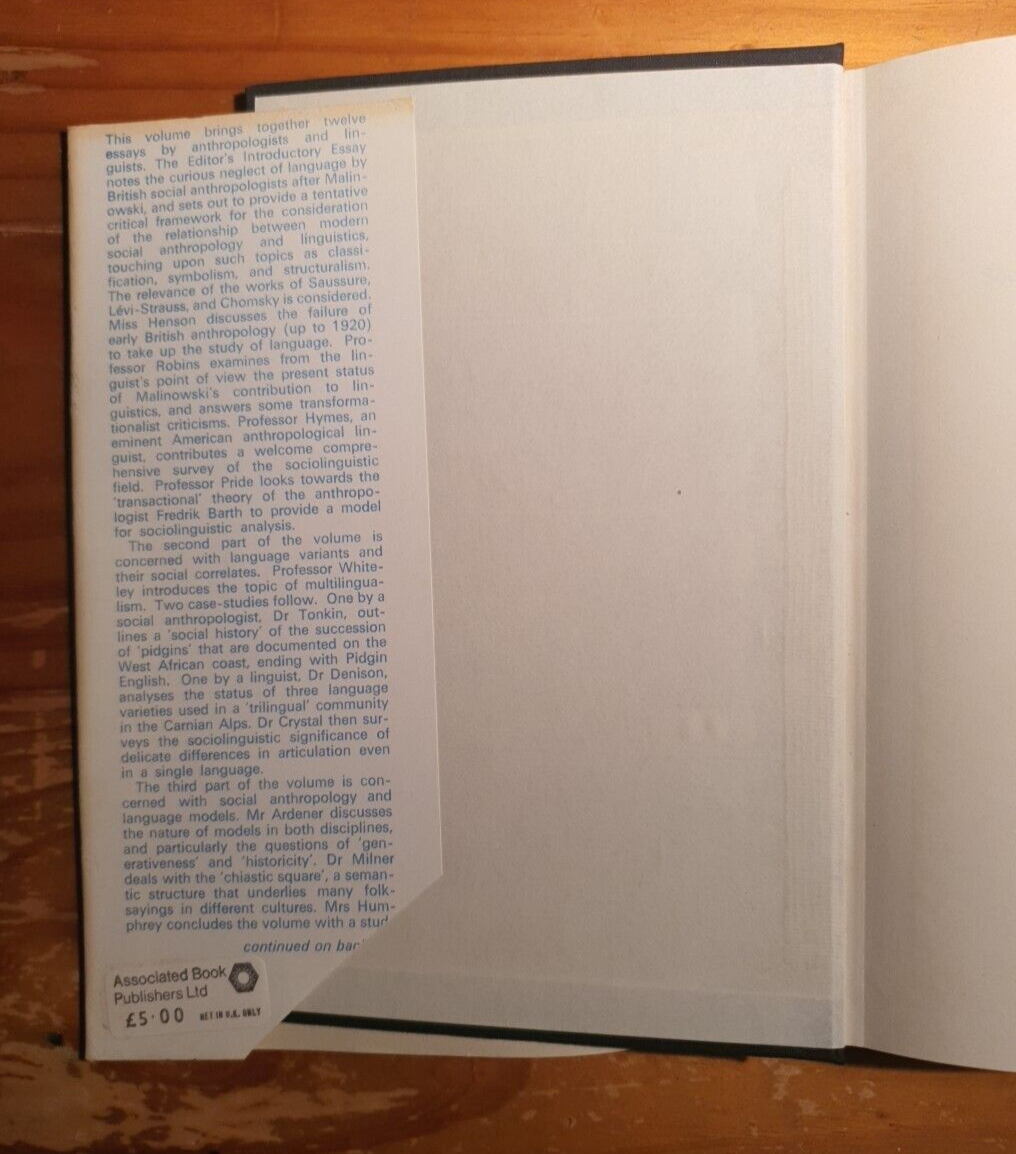 This volume brings together twelve
essays by anthropologists and lin-
guists. The Editor's Introductory Essay
notes the curious neglect of language by
British social anthropologists after Malin-
owski, and sets out to provide a tentative
critical framework for the consideration
of the relationship between modern
social anthropology and linguistics,
touching upon such topics as classi-
fication, symbolism, and structuralism.
The relevance of the works of Saussure,
Lévi-Strauss, and Chomsky is considered.
Miss Henson discusses the failure of
early British anthropology (up to 1920)
to take up the study of language. Pro-
fessor Robins examines from the lin-
guist's point of view the present status
of Malinowski's contribution to lin-
guistics, and answers some transforma-
tionalist criticisms. Professor Hymes, an
eminent American anthropological lin-
guist, contributes a welcome compre-
hensive survey of the sociolinguistic
field. Professor Pride looks towards the
'transactional' theory of the anthropo-
logist Fredrik Barth to provide a model
for sociolinguistic analysis.
The second part of the volume is
concerned with language variants and
their social correlates. Professor White-
ley introduces the topic of multilingua-
lism. Two case-studies follow. One by a
social anthropologist, Dr Tonkin, out-
lines a 'social history' of the succession
of 'pidgins' that are documented on the
West African coast, ending with Pidgin
English. One by a linguist, Dr Denison,
analyses the status of three language
varieties used in a 'trilingual' community
in the Carnian Alps. Dr Crystal then sur-
veys the sociolinguistic significance of
delicate differences in articulation even
in a single language.
The third part of the volume is con-
cerned with social anthropology and
language models. Mr Ardener discusses
the nature of models in both disciplines,
and particularly the questions of 'gen-
erativeness' and 'historicity'. Dr Milner
deals with the 'chiastic square', a seman-
tic structure that underlies many folk-
sayings in different cultures. Mrs Hum-
phrey concludes the volume with a stud
continued on bac
Associated Book
Publishers Ltd
£5·00 NET IN U.K. ONLY